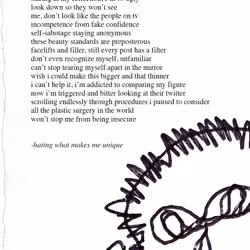 look down so they won't see
me, don't look like the people on tv
incompetence from fake confidence
self-sabotage staying anonymous
these beauty standards are preposterous
facelifts and filler, still every post has a filter
don't even recognize myself, unfamiliar
can't stop tearing myself apart in the mirror
wish i could make this bigger and that thinner
i can't help it, i'm addicted to comparing my figure
now i'm triggered and bitter looking at their twitter
scrolling endlessly through procedures i paused to consider
all the plastic surgery in the world
won't stop me from being insecure
-hating what makes me unique